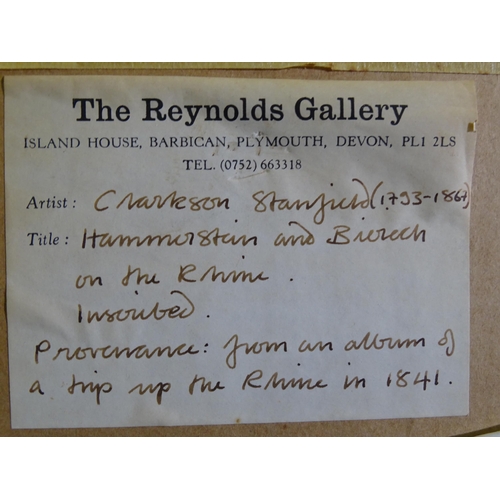 The Reynolds Gallery
ISLAND HOUSE, BARBICAN, PLYMOUTH, DEVON, PL1 2LS
TEL. (0752) 663318
Artist: Clarkson Stanfield (1793-1867)
Title: Hammerstein and Bierech
on the Rhine.
Inscribed.
Provenance: from an album of
a trip up the Rhine in 1841.